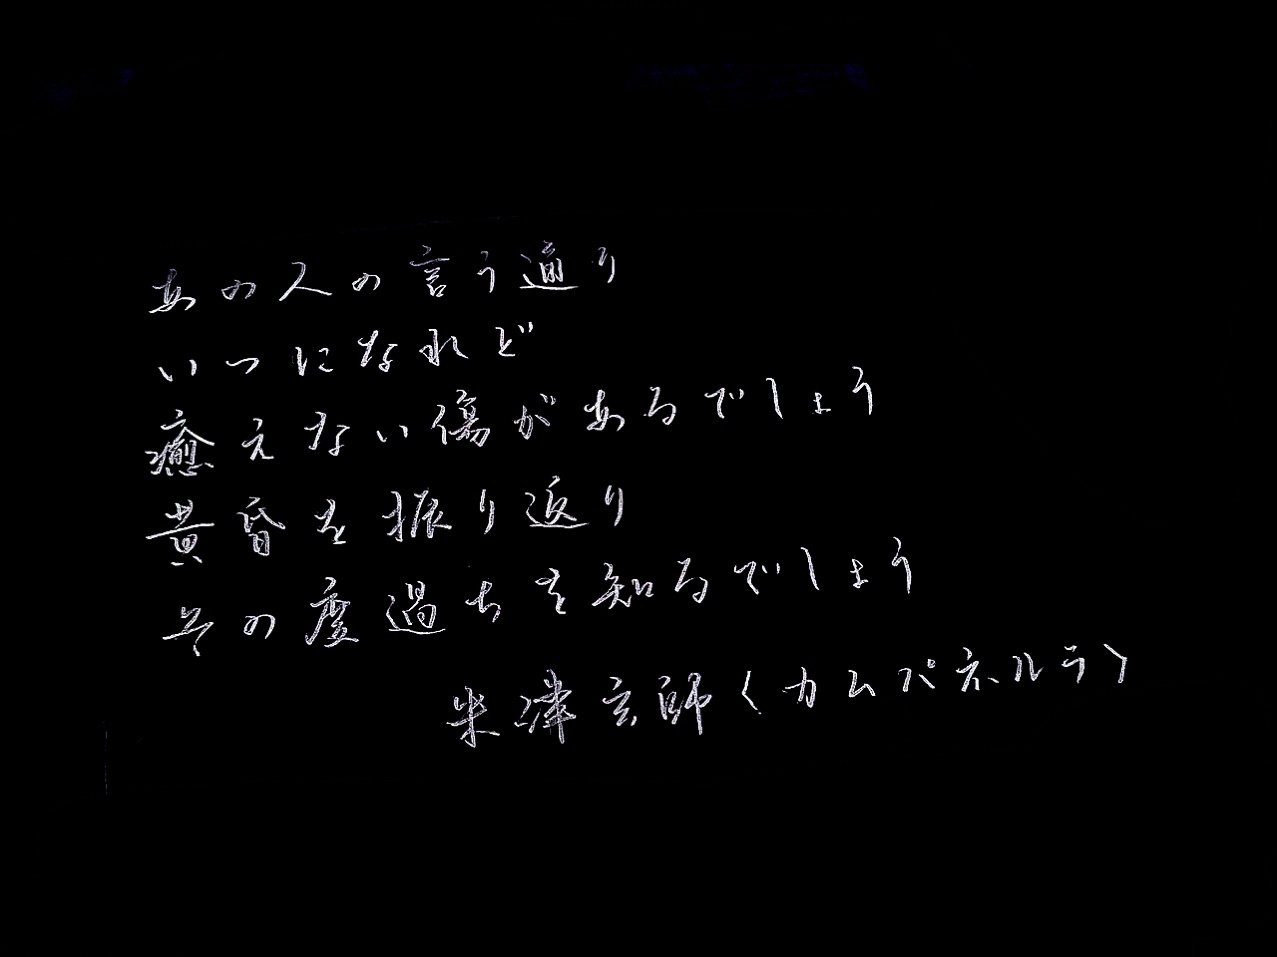 あの人の言う通り
いつになれど
癒えない傷があるでしょう
黄昏を振り返り
その度過ちを知るでしょう
米津玄師〈カムパネルラ〉